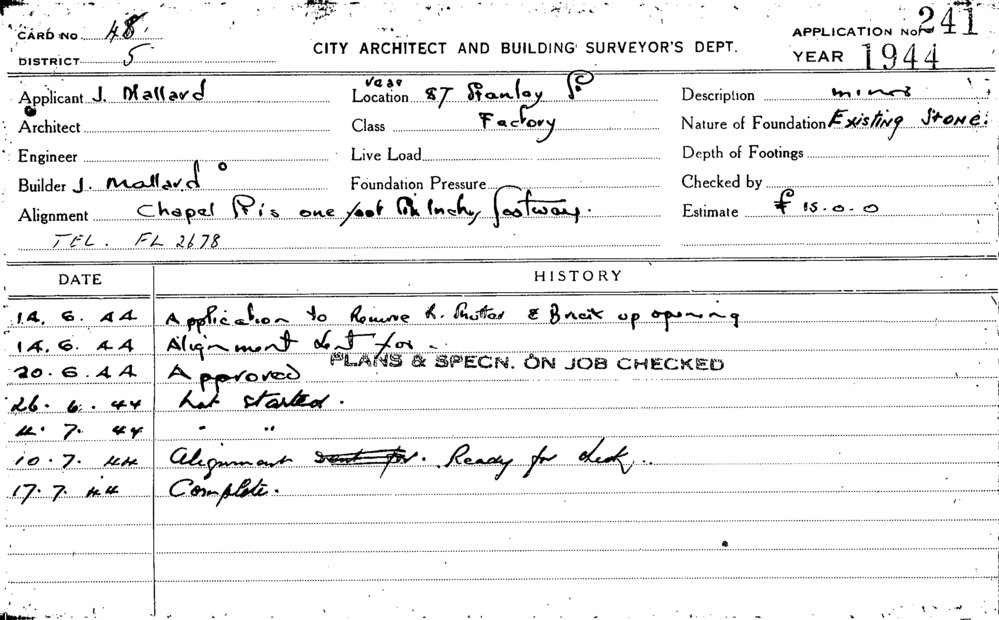 CARD NO. 48
APPLICATION No. 241
DISTRICT 5
CITY ARCHITECT AND BUILDING SURVEYOR'S DEPT.
YEAR 1944
Applicant J. Mallard
Location rear 87 Stanley St
Description minor
Architect
Class Factory
Nature of Foundation Existing Stone.
Engineer
Live Load
Depth of Footings
Builder J. Mallard
Foundation Pressure
Checked by
Alignment Chapel St is one foot footway.
Estimate £ 15.0.0
TEL. FL 2678
DATE HISTORY
14.6.44 Application to Remove R. Shutter & Brick up opening
14.6.44 Alignment sent for.
PLANS & SPECN. ON JOB CHECKED
20.6.44 Approved
26.6.44 not started.
4.7.44 " "
10.7.44 Alignment sent for. Ready for
17.7.44 Complete.